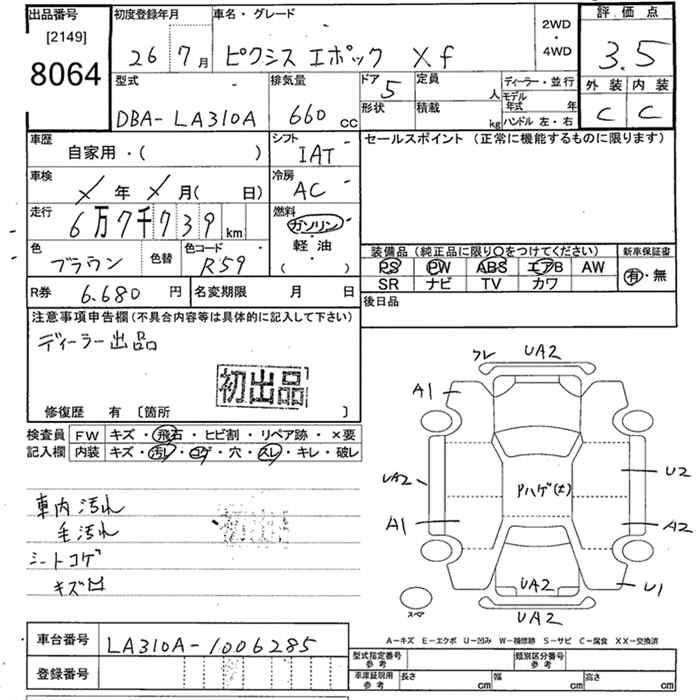 出品番号
[2149]
8064
初度登録年月
26 7月
車名・グレード
ピクシス エポック Xf
2WD
・
4WD
評価点
3.5
外装 内装
C C
型式
DBA-LA310A
排気量
660 cc
ドア 5
形状
定員 人
積載 kg
ディーラー・並行
モデル年式 年
ハンドル 左・右
車歴
自家用・( )
シフト
IAT
セールスポイント (正常に機能するものに限ります)
車検
年 月( 日)
冷房
AC
走行
6万7千739 km
燃料
ガソリン
・
軽油
( )
色
ブラウン
色替
色コード
R59
装備品 (純正品に限り○をつけてください)
PS PW ABS エアB AW
SR ナビ TV カワ
新車保証書
有・無
R券 6,680 円
名変期限 月 日
後日品
注意事項申告欄 (不具合内容等は具体的に記入して下さい)
ディーラー出品
初出品
修復歴 有 [箇所 ]
検査員
記入欄
FW キズ・飛石・ヒビ割・リペア跡・×要
内装 キズ・汚レ・コゲ・穴・スレ・キレ・破レ
車内汚れ
毛汚れ
シートコゲ
キズ凹
初出品
クレ UA2
A1
UA2
U2
Pハゲ(土)
A1
A2
UA2
U1
スペア
UA2
A-キズ E-エクボ U-凹み W-補修跡 S-サビ C-腐食 XX-交換済
車台番号
LA310A-1006285
登録番号
型式指定番号
参考
類別区分番号
参考
車庫証明用
参考
長さ cm
幅 cm
高さ cm